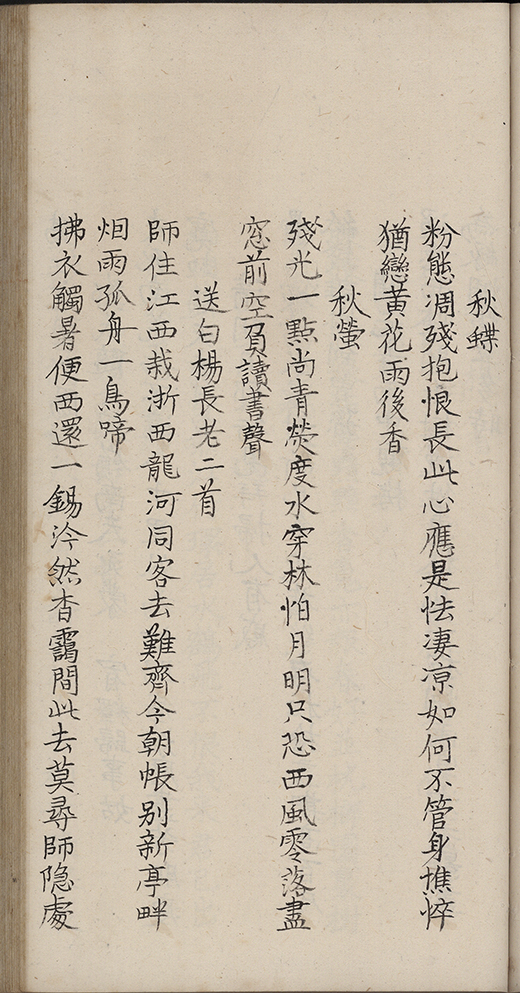 秋蝶
粉態凋殘抱恨長此心應是怯凄凉如何不管身憔悴
猶戀黃花雨後香
秋螢
殘光一點尚青熒度水穿林怕月明只恐西風零落盡
窓前空負讀書聲
送白楊長老二首
師住江西栽浙西龍河同客去難齊今朝帳别新亭畔
烟雨孤舟一鳥啼
拂衣觸暑便西還一錫泠然杳靄間此去莫尋師隐處